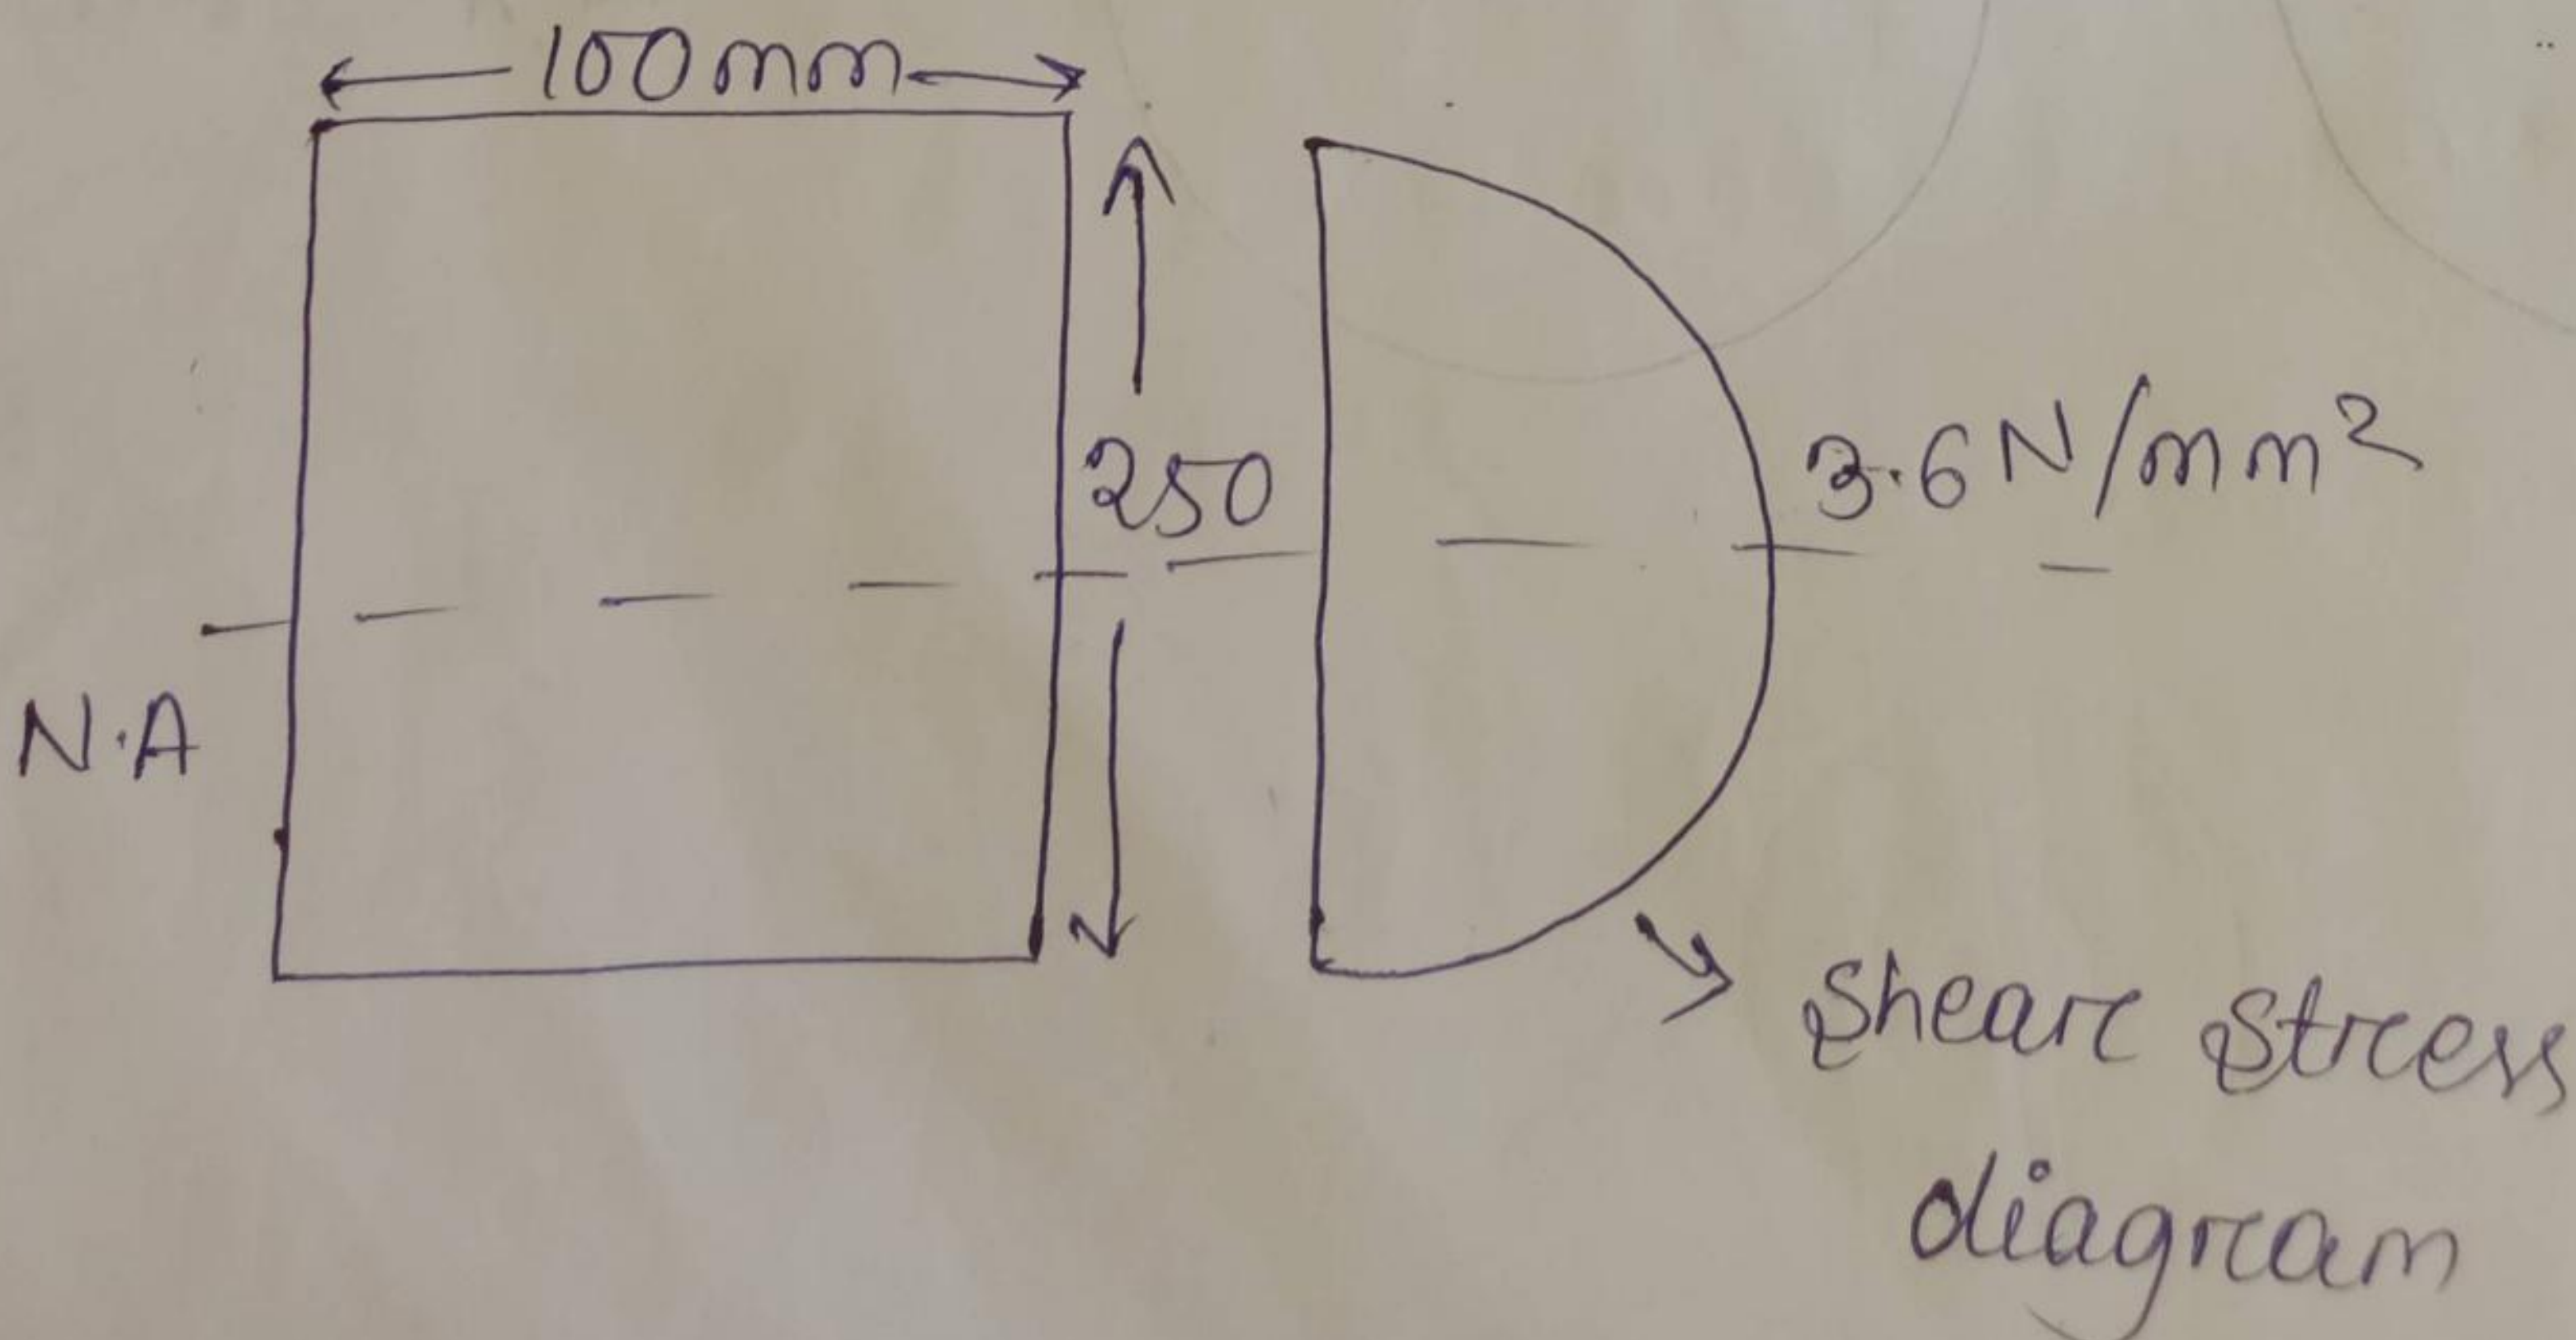 100mm
250
3.6N/mm²
N.A
Shear stress
diagram